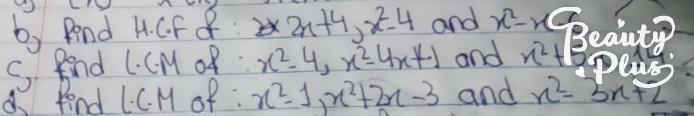 b) find H.C.F of : 2x+4, x²-4 and x²-x
c) find L.C.M of : x²-4, x²-4x+1 and x²+
d) find L.C.M of : x²-1, x²+2x-3 and x²-3x+2
Beauty Plus